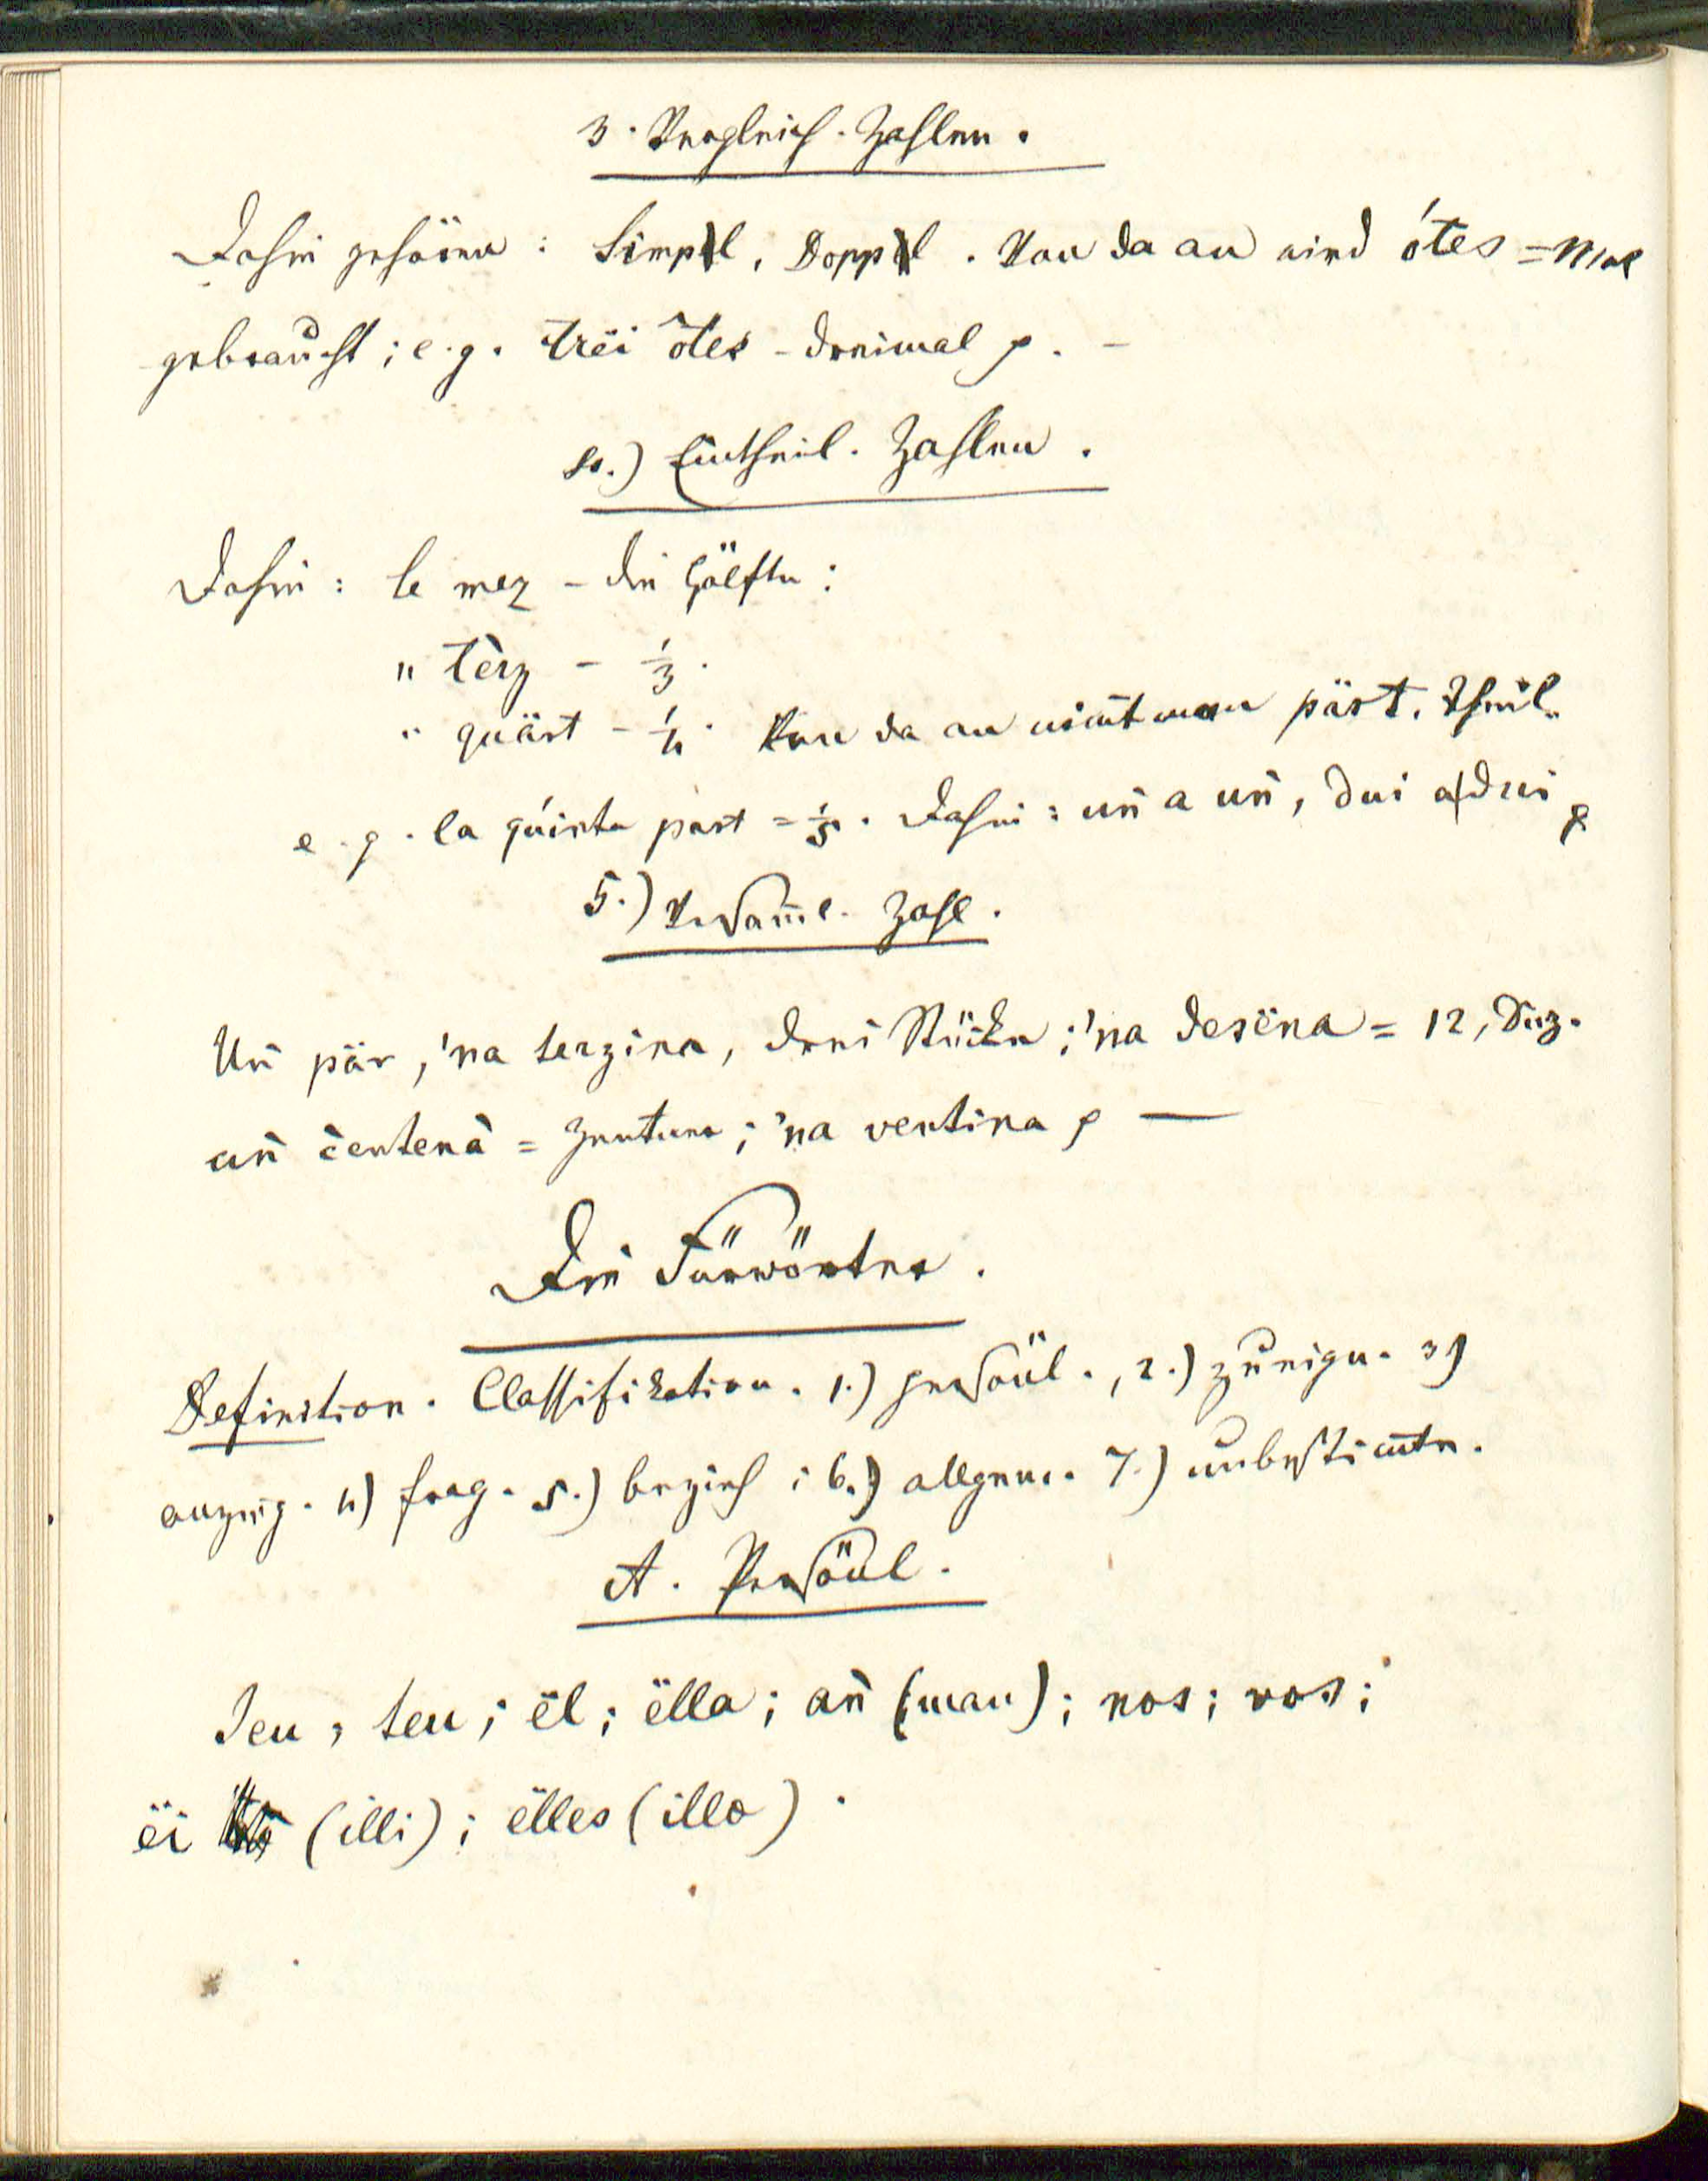 3. Vergleich. Zahlen.
Dahin gehören: Simpl, Doppl. Von da an wird ótes = Mal
gebraucht; e.g. trëi ôtes - dreimal p. -
4.) Eintheil. Zahlen.
Dahin: le mez - die Hälfte:
" tèrz - 1/3.
" quärt - 1/4. Von da an nim̄t man pärt. Theil.
e. g. la quinta part = 1/5. Dahin: uñ a uñ, dui a dui p
5.) Versam̄l. Zahl.
Uñ pär, 'na terzina, drei Stücke; 'na desëna = 12, Duz.
añ c̀entenà = Zentner; 'na ventina p —
Die Fürwörter.
Definition. Classifikation. 1.) persönl., 2.) zueign. 3)
anzeig. 4) frag. 5.) bezieh; 6.) allgem. 7.) unbestim̄te.
A. Persönl.
Ieu, teu; ël; ëlla; añ (man); nos; vos;
ëi (illi); ëlles (illa).